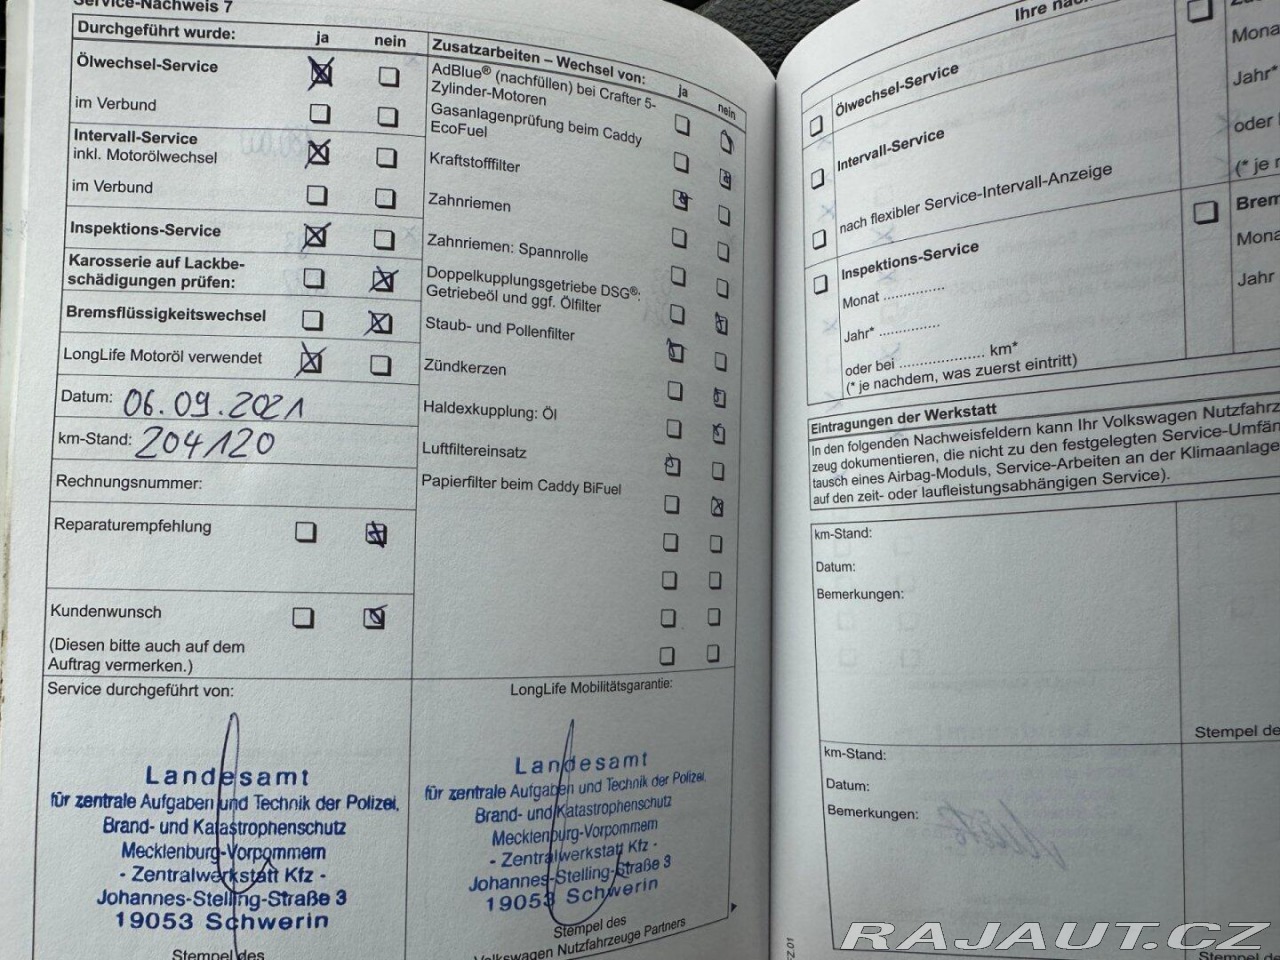 Service-Nachweis 7
Durchgeführt wurde: ja nein
Ölwechsel-Service
im Verbund
Intervall-Service
inkl. Motorölwechsel
im Verbund
Inspektions-Service
Karosserie auf Lackbe-
schädigungen prüfen:
Bremsflüssigkeitswechsel
LongLife Motoröl verwendet
Datum: 06.09.2021
km-Stand: 204120
Rechnungsnummer:
Reparaturempfehlung
Kundenwunsch
(Diesen bitte auch auf dem
Auftrag vermerken.)
Service durchgeführt von:
Landesamt
für zentrale Aufgaben und Technik der Polizei,
Brand- und Katastrophenschutz
Mecklenburg-Vorpommern
- Zentralwerkstatt Kfz -
Johannes-Stelling-Straße 3
19053 Schwerin
Stempel des
Zusatzarbeiten – Wechsel von: ja nein
AdBlue® (nachfüllen) bei Crafter 5-
Zylinder-Motoren
Gasanlagenprüfung beim Caddy
EcoFuel
Kraftstofffilter
Zahnriemen
Zahnriemen: Spannrolle
Doppelkupplungsgetriebe DSG®:
Getriebeöl und ggf. Ölfilter
Staub- und Pollenfilter
Zündkerzen
Haldexkupplung: Öl
Luftfiltereinsatz
Papierfilter beim Caddy BiFuel
LongLife Mobilitätsgarantie:
Landesamt
für zentrale Aufgaben und Technik der Polizei,
Brand- und Katastrophenschutz
Mecklenburg-Vorpommern
- Zentralwerkstatt Kfz -
Johannes-Stelling-Straße 3
19053 Schwerin
Stempel des
Volkswagen Nutzfahrzeuge Partners
Ihre
Ölwechsel-Service
Intervall-Service
nach flexibler Service-Intervall-Anzeige
Inspektions-Service
Monat ...............
Jahr* ...............
oder bei ..................... km*
(* je nachdem, was zuerst eintritt)
Mona
Jahr*
oder
(* je
Brem
Mona
Jahr
Eintragungen der Werkstatt
In den folgenden Nachweisfeldern kann Ihr Volkswagen Nutzfahrz
zeug dokumentieren, die nicht zu den festgelegten Service-Umfän
tausch eines Airbag-Moduls, Service-Arbeiten an der Klimaanlage
auf den zeit- oder laufleistungsabhängigen Service).
km-Stand:
Datum:
Bemerkungen:
Stempel de
km-Stand:
Datum:
Bemerkungen:
Stempel des
RAJAUT.CZ